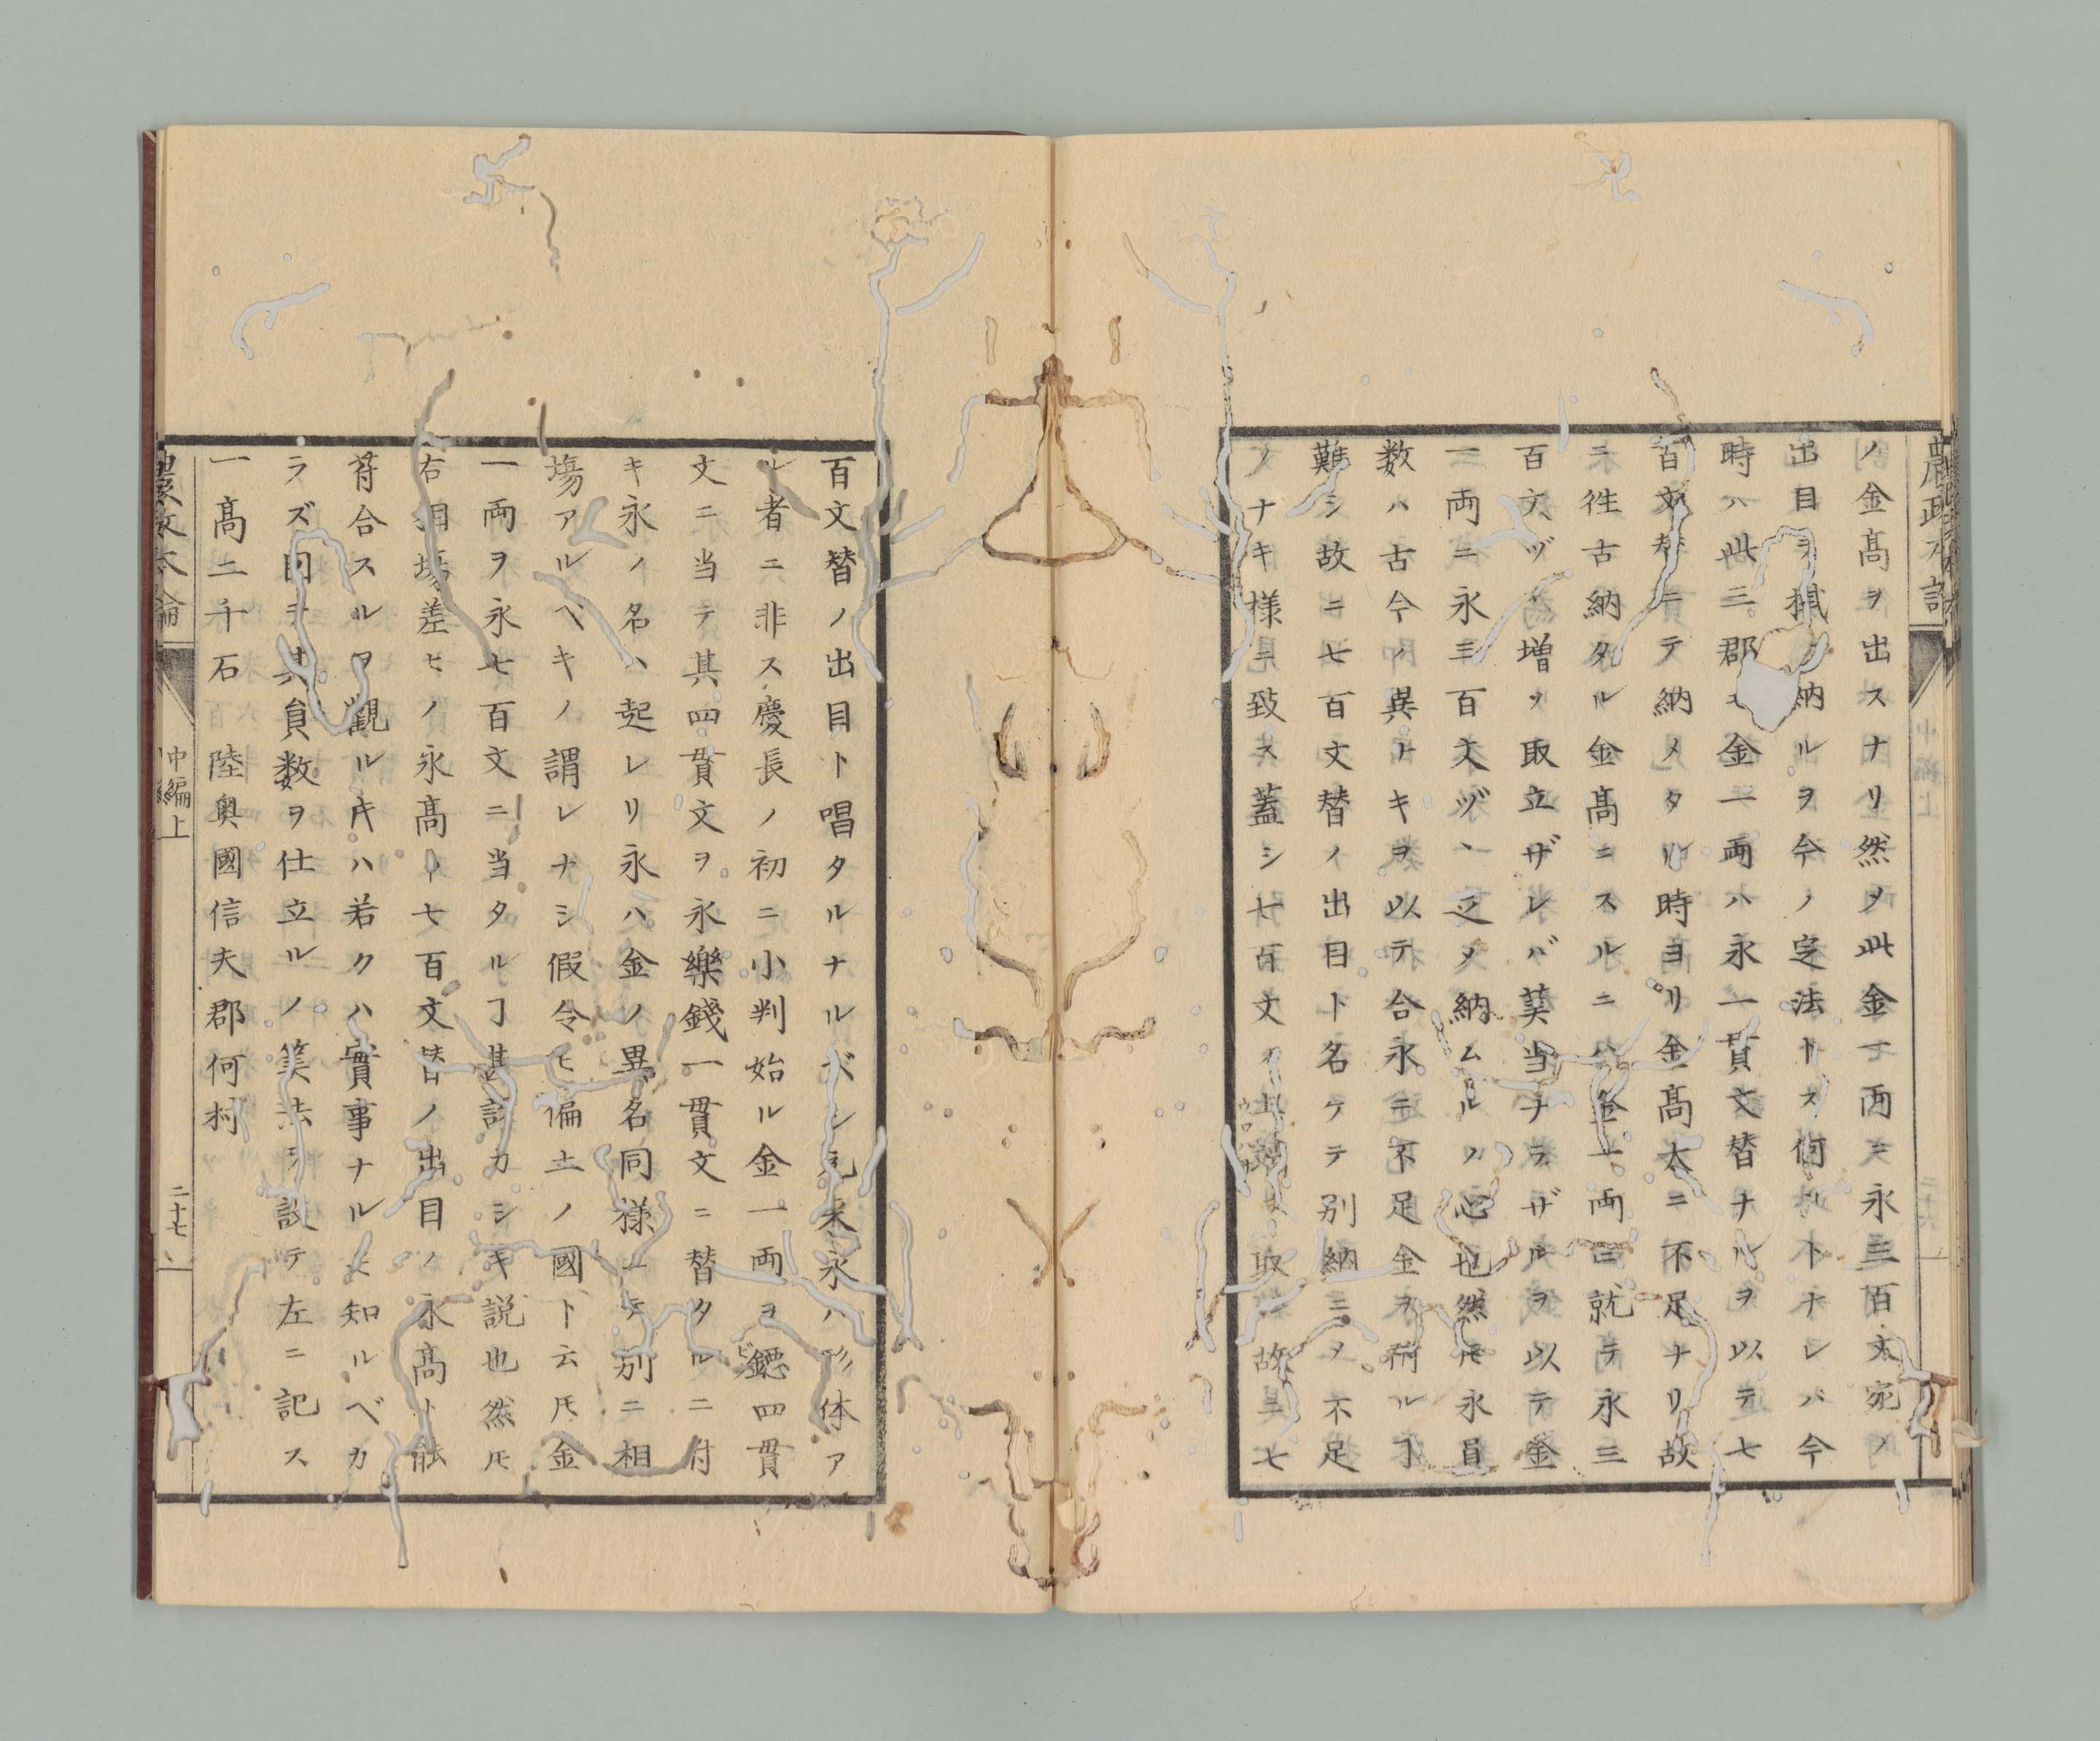 農政本論
ノ金高ヲ出スナリ然メ此金一両ニ永三百文宛ノ
出目ヲ掛ケ納ルヲ今ノ定法トス何 トナレバ今
時ハ此三郡モ金一両ハ永一貫文替ナルヲ以テ七
百文替ニテ納メタル時ヨリ金高大ニ不足ナリ故
ニ徃古納タル金高ニスルニハ金一両ニ就テ永三
百文ヅヽ増ヲ取立ザレバ筭当ナラザルヲ以テ金
一両ニ永三百文ヅヽ 之ヲ納ムルノ 也然𪜈永員
数ハ古今ノ異ナキヲ以テ合永ニ不足金ヲ納ルヿ
難シ故ニ七百文替ノ出目ト名ケテ別納ニメ不足
ノナキ様ニ致ス蓋シ七百文 取 故ニ七
百文替ノ出目ト唱タルナルベシ元来永ハ形体ア
ル者ニ非ス慶長ノ初ニ小判始ル金一両ヲ鐚四貫
文ニ当テ其四貫文ヲ永樂錢一貫文ニ替タルニ付
キ永ノ名ハ起レリ永ハ金ノ異名同様ニテ別ニ相
塲アルベキノ謂レナシ假令ヒ偏土ノ國ト云𪜈金
一両ヲ永七百文ニ当タルヿ甚訝カシキ説也然𪜈
右相塲差ヒノ永高ト七百文替ノ出目ノ永高ト能
苻合スルヲ觀ルキハ若クハ實事ナルモ知ルベカ
ラズ因テ其員数ヲ仕立ルノ筭法ヲ設テ左ニ記ス
一高二千石 陸奥國信夫郡何村
中編上
二十七